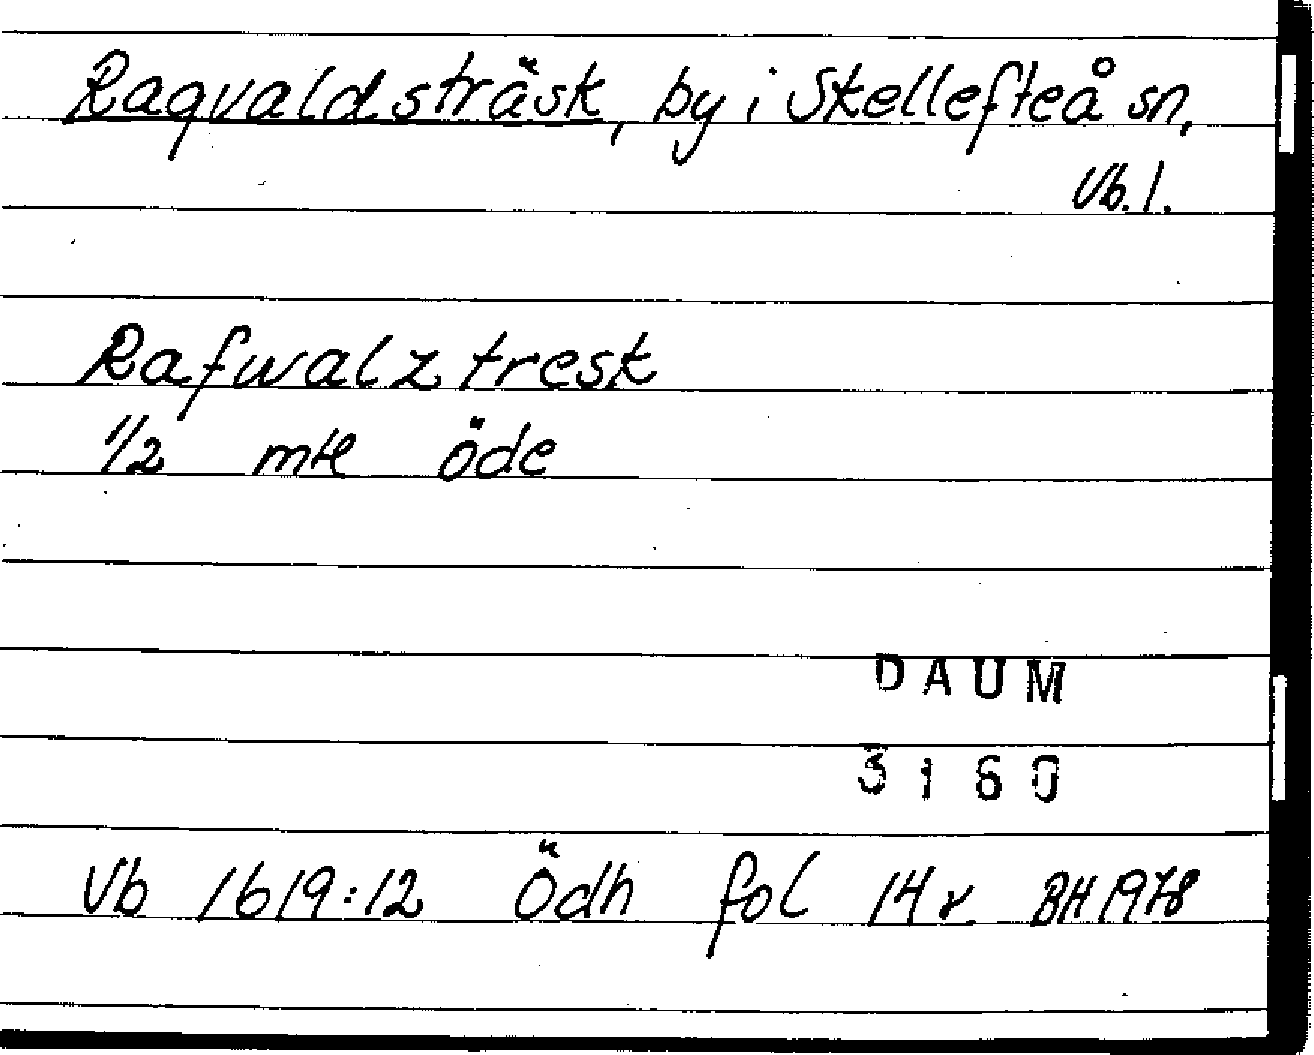 Ragvaldsträsk, by i Skellefteå sn,
Vb. l.
Rafwalz tresk
1/2 mtl öde
DAUM
3160
Vb 1619:12 Ödh fol 14 v. BH 1978